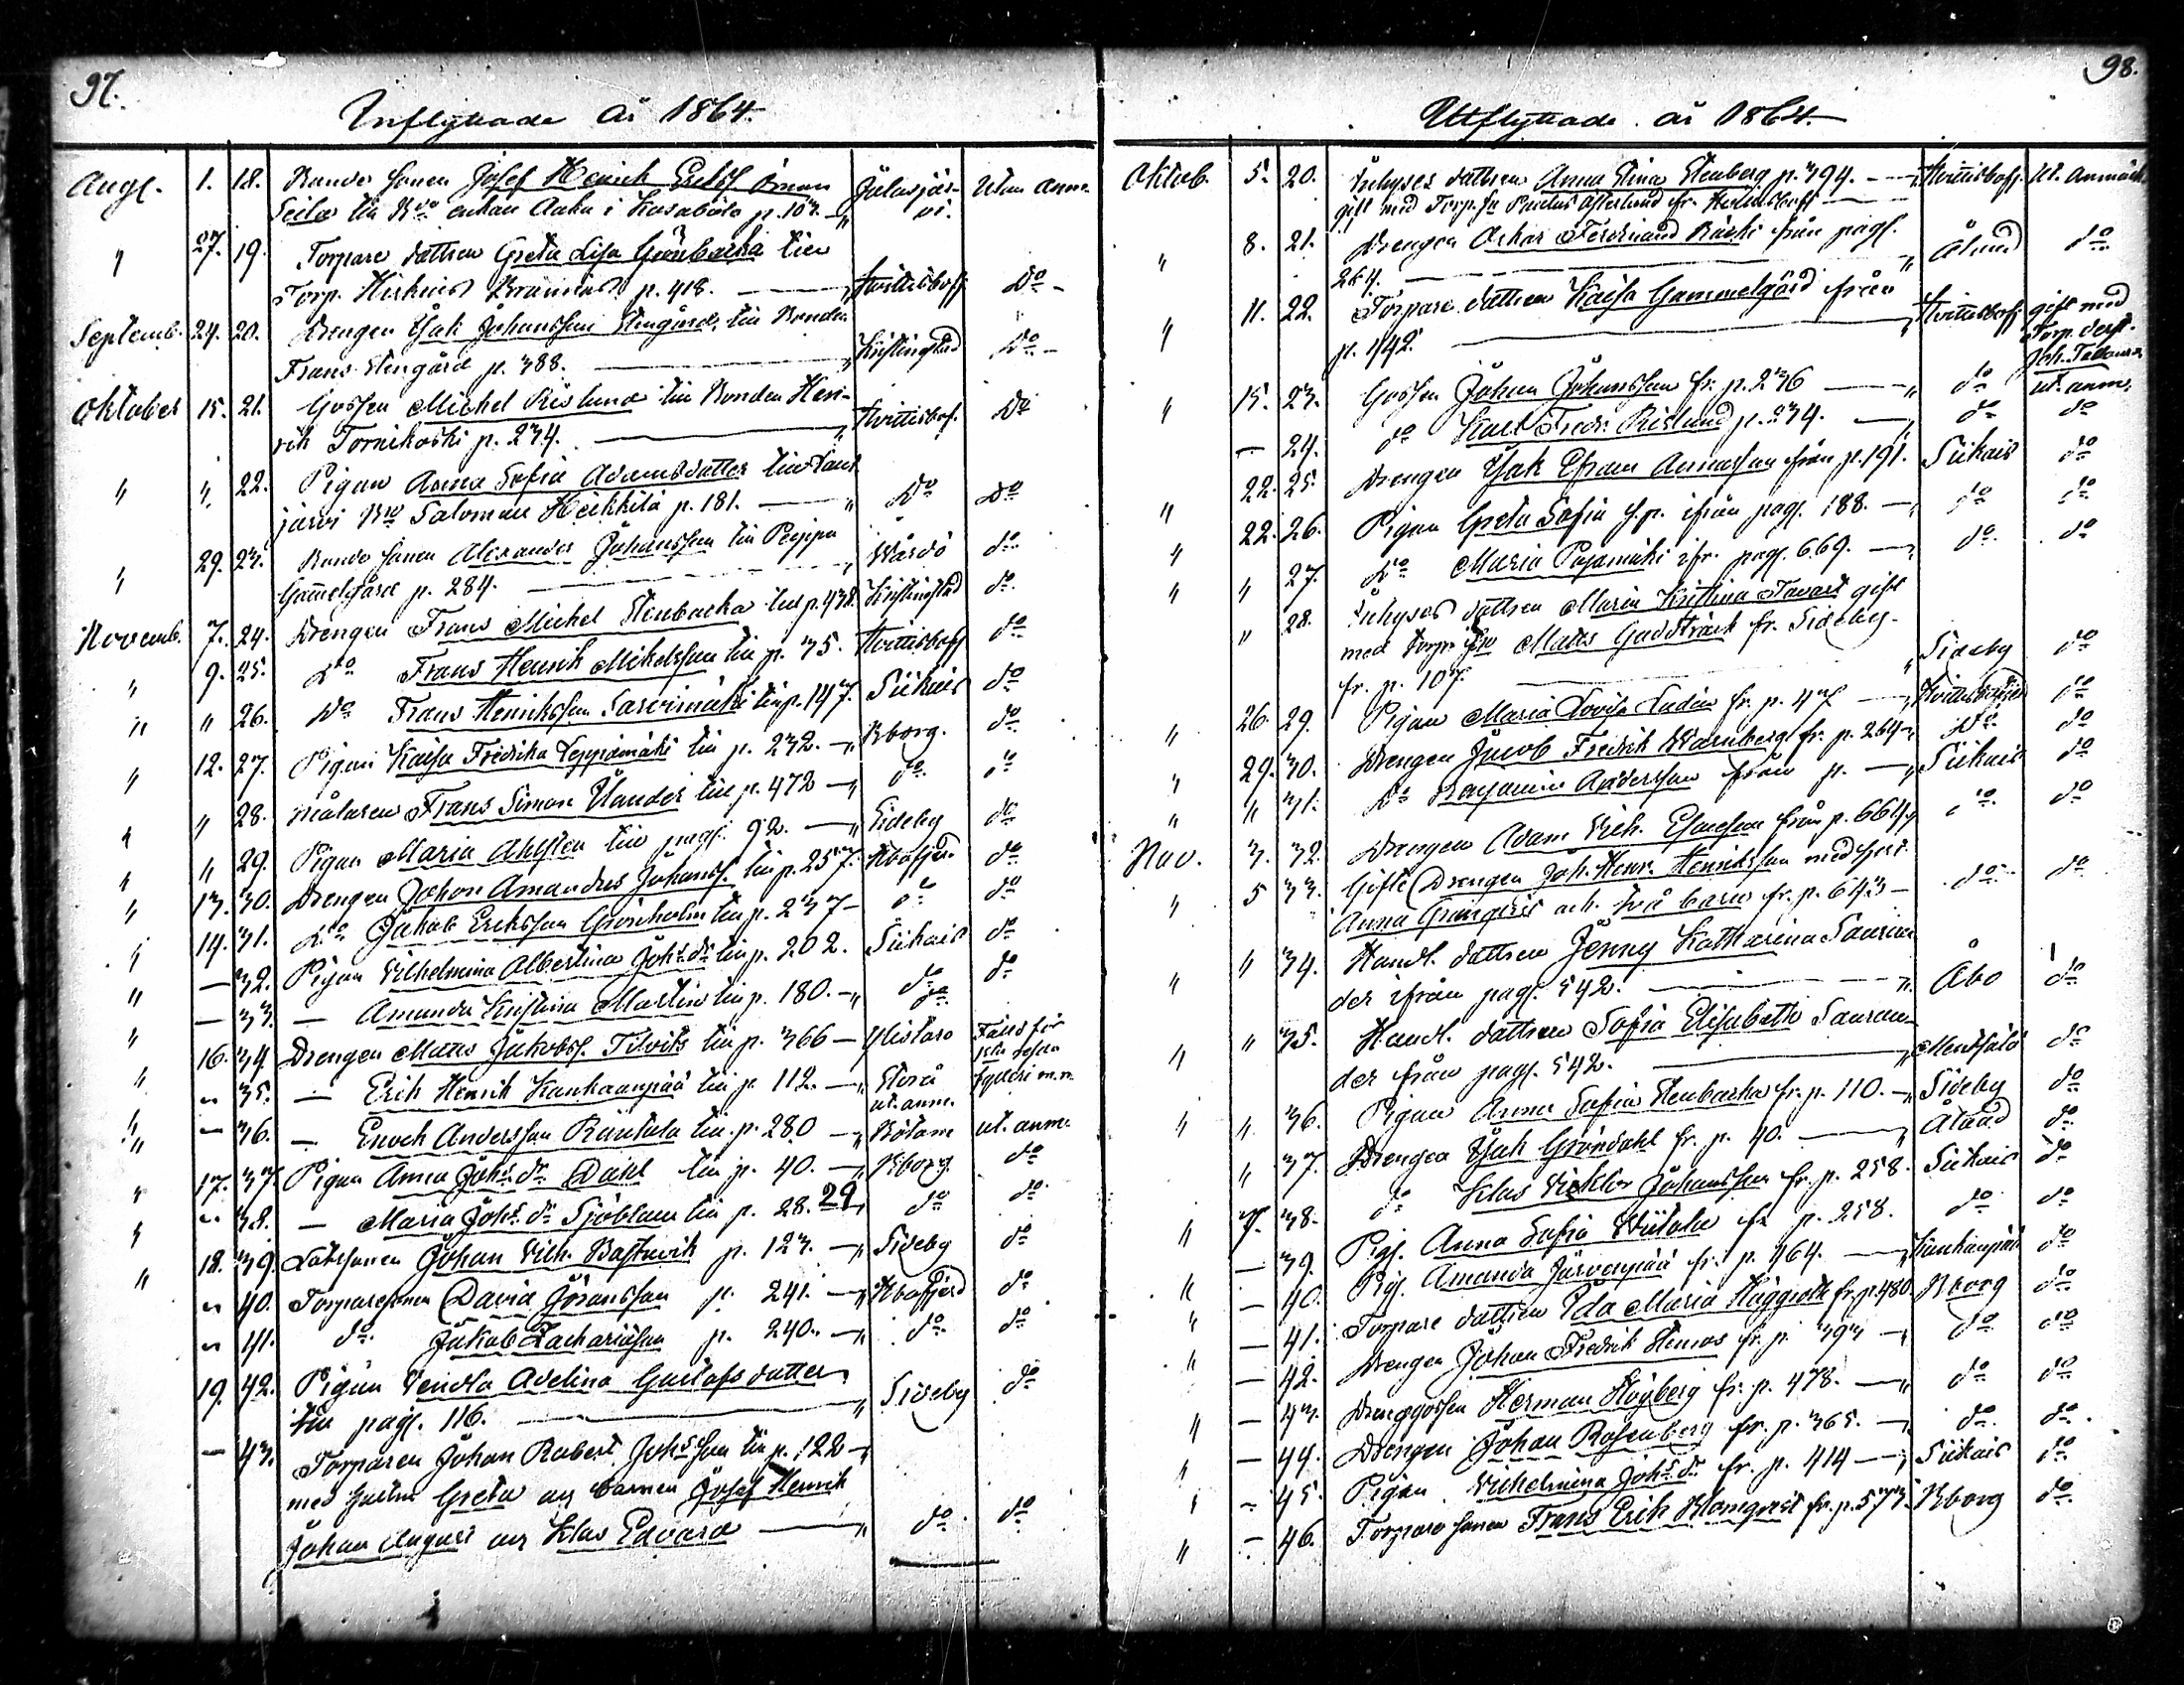 97.
Inflyttade år 1864.
Augs. 1. 18. Bonde sonen Josef Henrik Erikss Öman Jalasjär- Utan anm.
Seila till Bdo enkan Aaku i Kasaböle p. 107 — " vi.
" 27. 19. Torpare dottren Greta Lisa Grönbacka till
Torp. p. 418. — Hvittisboff Do
Septemb. 24. 20. Drengen Isak Johansson Stengård, till Bonden
Frans Stengård p. 388. — Kristinestad Do
Oktober 15. 21. Gossen Michel Röslund till Bonden Hen-
rik Tornikoski p. 234. — Hvittisbof. Do
" " 22. Pigan Anna Sofia Adamsdotter till
järvi Salomon Heikkilä p. 181. — " Do Do
" 29. 23. Bonde sonen Alexander Johansson till Pejippa Wårdö do
Gamelgård p. 284. —
Novemb. 7. 24. Drengen Frans Michel Stenbacka till p. 438. Kristinestad do
" 9. 25. Do Frans Henrik Mikelsson till p. 35. Hvittisboff do
" " 26. Do Frans Henriksson Sarvimäki till p. 147. Siikais do
" 12. 27. Pigan Kaisa Fredrika Leppämäki till p. 232. — " Bborg. do
" " 28. Målaren Frans Simon Ulander till p. 472 — " do do
" " 29. Pigan Maria Ahlsten till pag. 92. — " Sideby do
" 13. 30. Drengen Johan Amandus Johanss. till p. 257. do
" 14. 31. Do Jakob Eriksson Grönholm till p. 237 — do do
" — 32. Pigan Vilhelmina Albertina Johs dr till p. 202. Siikais do
" — 33. — Amanda Kristina Martin till p. 180. — " do do
" 16. 34. Drengen Matts Jakobss. Tilvits till p. 366 — Ylistaro
" " 35. — Erik Henrik Kankaanpää till p. 112. — " Storå fylleri m.m.
ut. anm.
" — 36. — Enoch Andersson Rantala till p. 280 — " Bötom ut. anm.
" 17. 37. Pigan Anna Johs. dr Dahl till p. 40. — " Bborg do
" " 38. — Maria Johs. dr Sjöblom till p. 28. 29 do do
" 18. 39. Johan Vilh. Bastuvik p. 123. — " Sideby do
" 40. Torparesonen David Göransson p. 241. — " do
" 41. do Jakob Zachariasson p. 240. — " do do
19. 42. Pigan Vendla Adelina Gustafsdotter
till pag. 116. — " Sideby do
— 43. Torparen Johan Robert Johsson till p. 122 — "
med hustru Greta och barnen Josef Henrik
Johan August och Klas Edvard — " do do
98.
Utflyttade år 1864.
Oktob. 5. 20. Inhyses dottren Anna Stina Stenberg p. 394. — Hvittisboff. Ut. anmärk.
gift med Torp. Paulus Österlund fr. Hvittisboff —
" 8. 21. Drengen Oskar Ferdinand Räiski från pag. Åland do
264. — "
" 11. 22. Torpare dottren Kaisa Gammelgård från Hvittisbof. gift med
p. 142. — " Torp. derst.
Joh.
" 15. 23. Gossen Johan Johansson fr. p. 236 — " do ut. anm.
— 24. do Karl Fredr. Röslund p. 234. — " do do
" 22. 25. Drengen Isak Efraim Annasson från p. 191. Siikais do
" 22. 26. Pigan Greta Sofia h.p. ifrån pag. 188. — " do do
" " 27. Do Maria Pajamäki ifr. pag. 669. — " do do
" 28. Inhyses dottren Maria Kristina Tavast gift
med torp. Matts Guddträsk fr. Sideby.
fr. p. 107. — " Sideby do
" 26. 29. Pigan Maria Lovisa Ludin fr. p. 47 — do
" 29. 30. Drengen Jacob Fredrik Warnberg fr. p. 264 — " Do do
" " 31. Do Benjamin Andersson från p. — " Siikais do
Nov. 3. 32. Drengen Adam Vilh. Esaiesson från p. 664. " do do
" 5 33. Gifte Drengen Joh. Henr. Henriksson med hust.
Anna Grangvist och två barn fr. p. 643 — do do
" " 34. Handl. dottren Jenny Katharina Saurén-
der ifrån pag. 542. — " Åbo do
" " 35. Handl. dottren Sofia Elisabeth Sauren-
der från pag. 542. — " do
" " 36. Pigan Anna Sofia Stenbacka fr. p. 110. — " Sideby do
" 37. Drengen Isak Gröndahl fr. p. 40. — " Åland do
" 7. 38. do Klas Viktor Johansson fr. p. 258. Siikais do
— 39. Pig. Anna Sofia Wiitala fr p. 258. do do
" — 40. Pig. Amanda Järvenpää fr. p. 164. — " Kankanpää do
" — 41. Torpare dottren Ida Maria Häggroth fr. p. 480 Bborg do
" — 42. Drengen Johan Fredrik Stenros fr. p. 393 — " do do
" — 43. Drenggossen Herman Högberg fr. p. 478. — " do do
" — 44. Drengen Johan Rosenberg fr. p. 365. — " do do
" — 45. Pigan Vilhelmina Johs. dr fr. p. 414 — " Siikais do
" — 46. Torpare sonen Frans Erik Blomqvist fr. p. 573. Bborg do